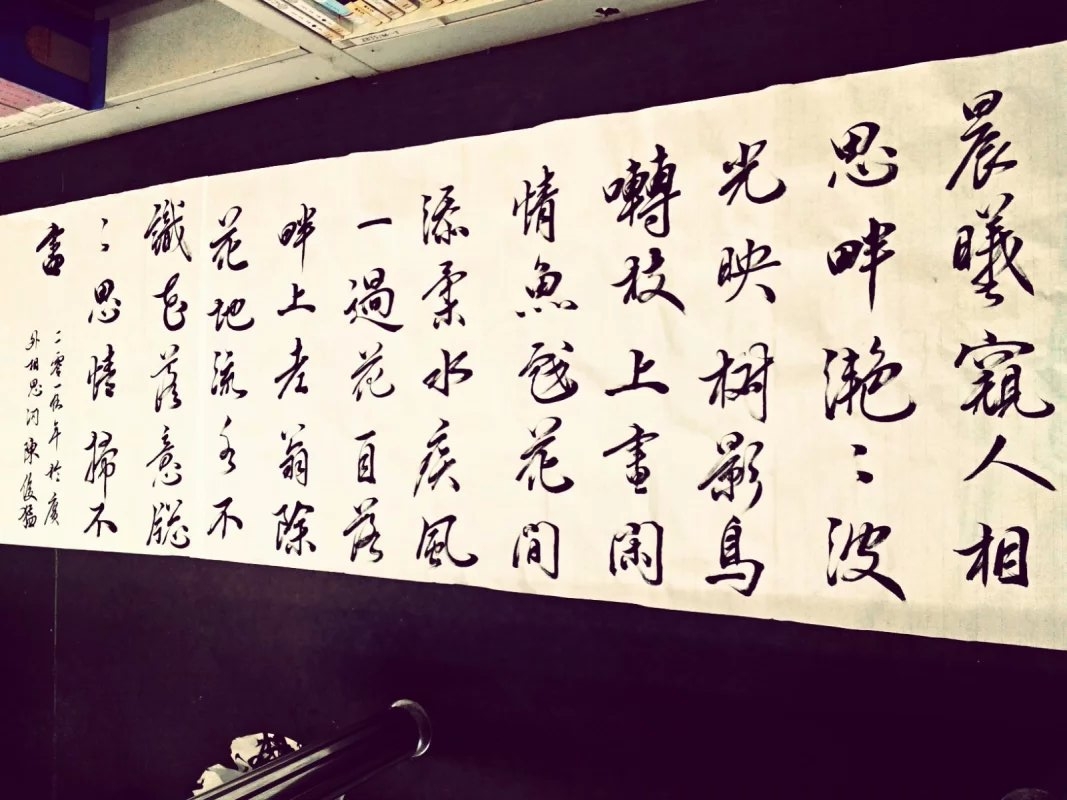 晨曦窺人相
思畔灧〻波
光映樹影鳥
囀枝上盡閑
情魚戲花間
添柔水疾風
一過花自落
畔上老翁除
花地流水不
識花落意總
〻思情掃不
盡
二零一伍年於廣
外相思河 陳俊猛